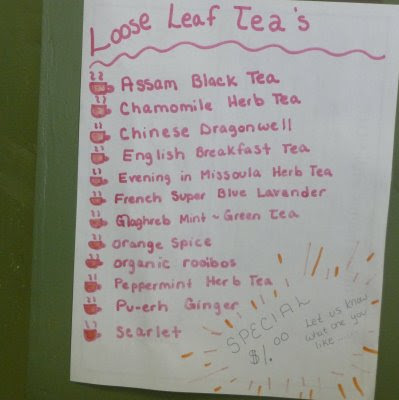 Loose Leaf Tea's
Assam Black Tea
Chamomile Herb Tea
Chinese Dragonwell
English Breakfast Tea
Evening in Missoula Herb Tea
French Super Blue Lavander
Maghreb Mint ~ Green Tea
orange Spice
organic rooibos
Peppermint Herb Tea
Pu-erh Ginger
Scarlet
SPECIAL
$1.00
Let us know
what one you
like.....